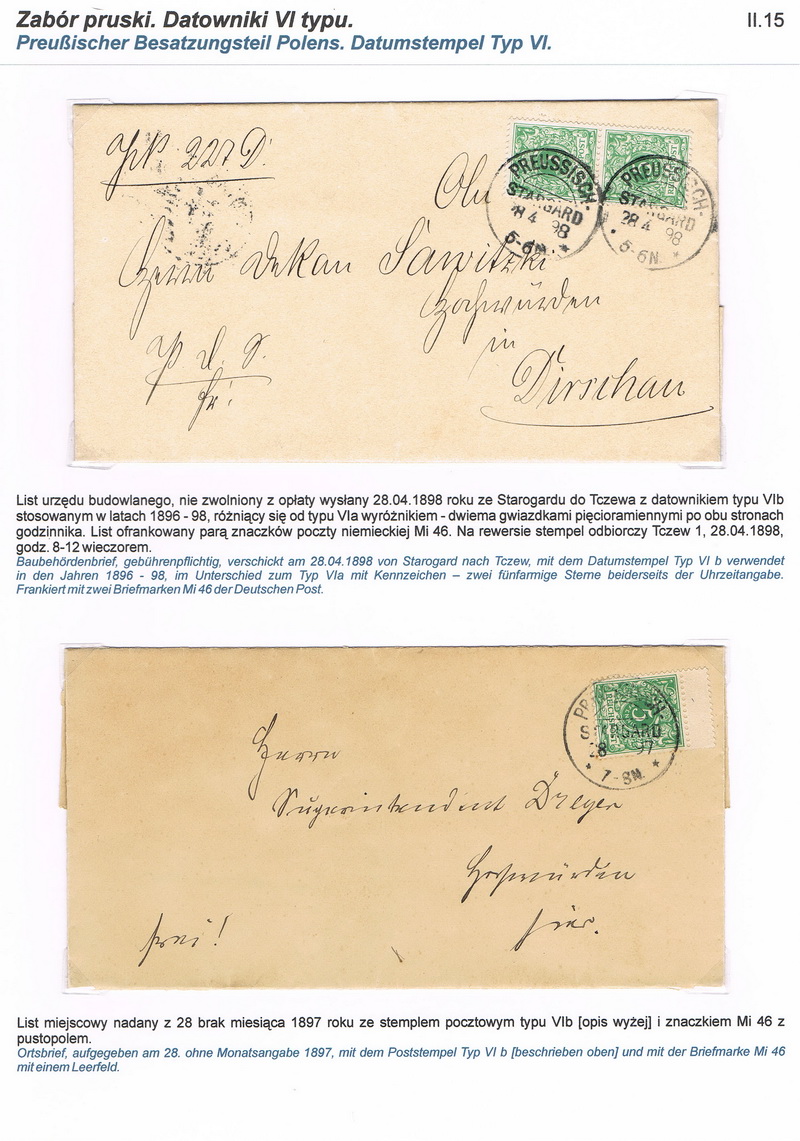 Zabór pruski. Datowniki VI typu.
II.15
Preußischer Besatzungsteil Polens. Datumstempel Typ VI.
227 D.
PREUSSISCH-
STARGARD
28 4 98
5-6N. *
PREUSSISCH-
STARGARD
28 4 98
5-6N *
Herrn Dekan Sawitzki
Hochwürden
in
Dirschau
List urzędu budowlanego, nie zwolniony z opłaty wysłany 28.04.1898 roku ze Starogardu do Tczewa z datownikiem typu VIb
stosowanym w latach 1896 - 98, różniący się od typu VIa wyróżnikiem - dwiema gwiazdkami pięcioramiennymi po obu stronach
godzinnika. List ofrankowany parą znaczków poczty niemieckiej Mi 46. Na rewersie stempel odbiorczy Tczew 1, 28.04.1898,
godz. 8-12 wieczorem.
Baubehördenbrief, gebührenpflichtig, verschickt am 28.04.1898 von Starogard nach Tczew, mit dem Datumstempel Typ VI b verwendet
in den Jahren 1896 - 98, im Unterschied zum Typ VIa mit Kennzeichen – zwei fünfarmige Sterne beiderseits der Uhrzeitangabe.
Frankiert mit zwei Briefmarken Mi 46 der Deutschen Post.
STARGARD
28 97
* 7-8N. *
Herrn
Superintendent Dreyer
Hochwürden
hier.
frei!
List miejscowy nadany z 28 brak miesiąca 1897 roku ze stemplem pocztowym typu VIb [opis wyżej] i znaczkiem Mi 46 z
pustopolem.
Ortsbrief, aufgegeben am 28. ohne Monatsangabe 1897, mit dem Poststempel Typ VI b [beschrieben oben] und mit der Briefmarke Mi 46
mit einem Leerfeld.